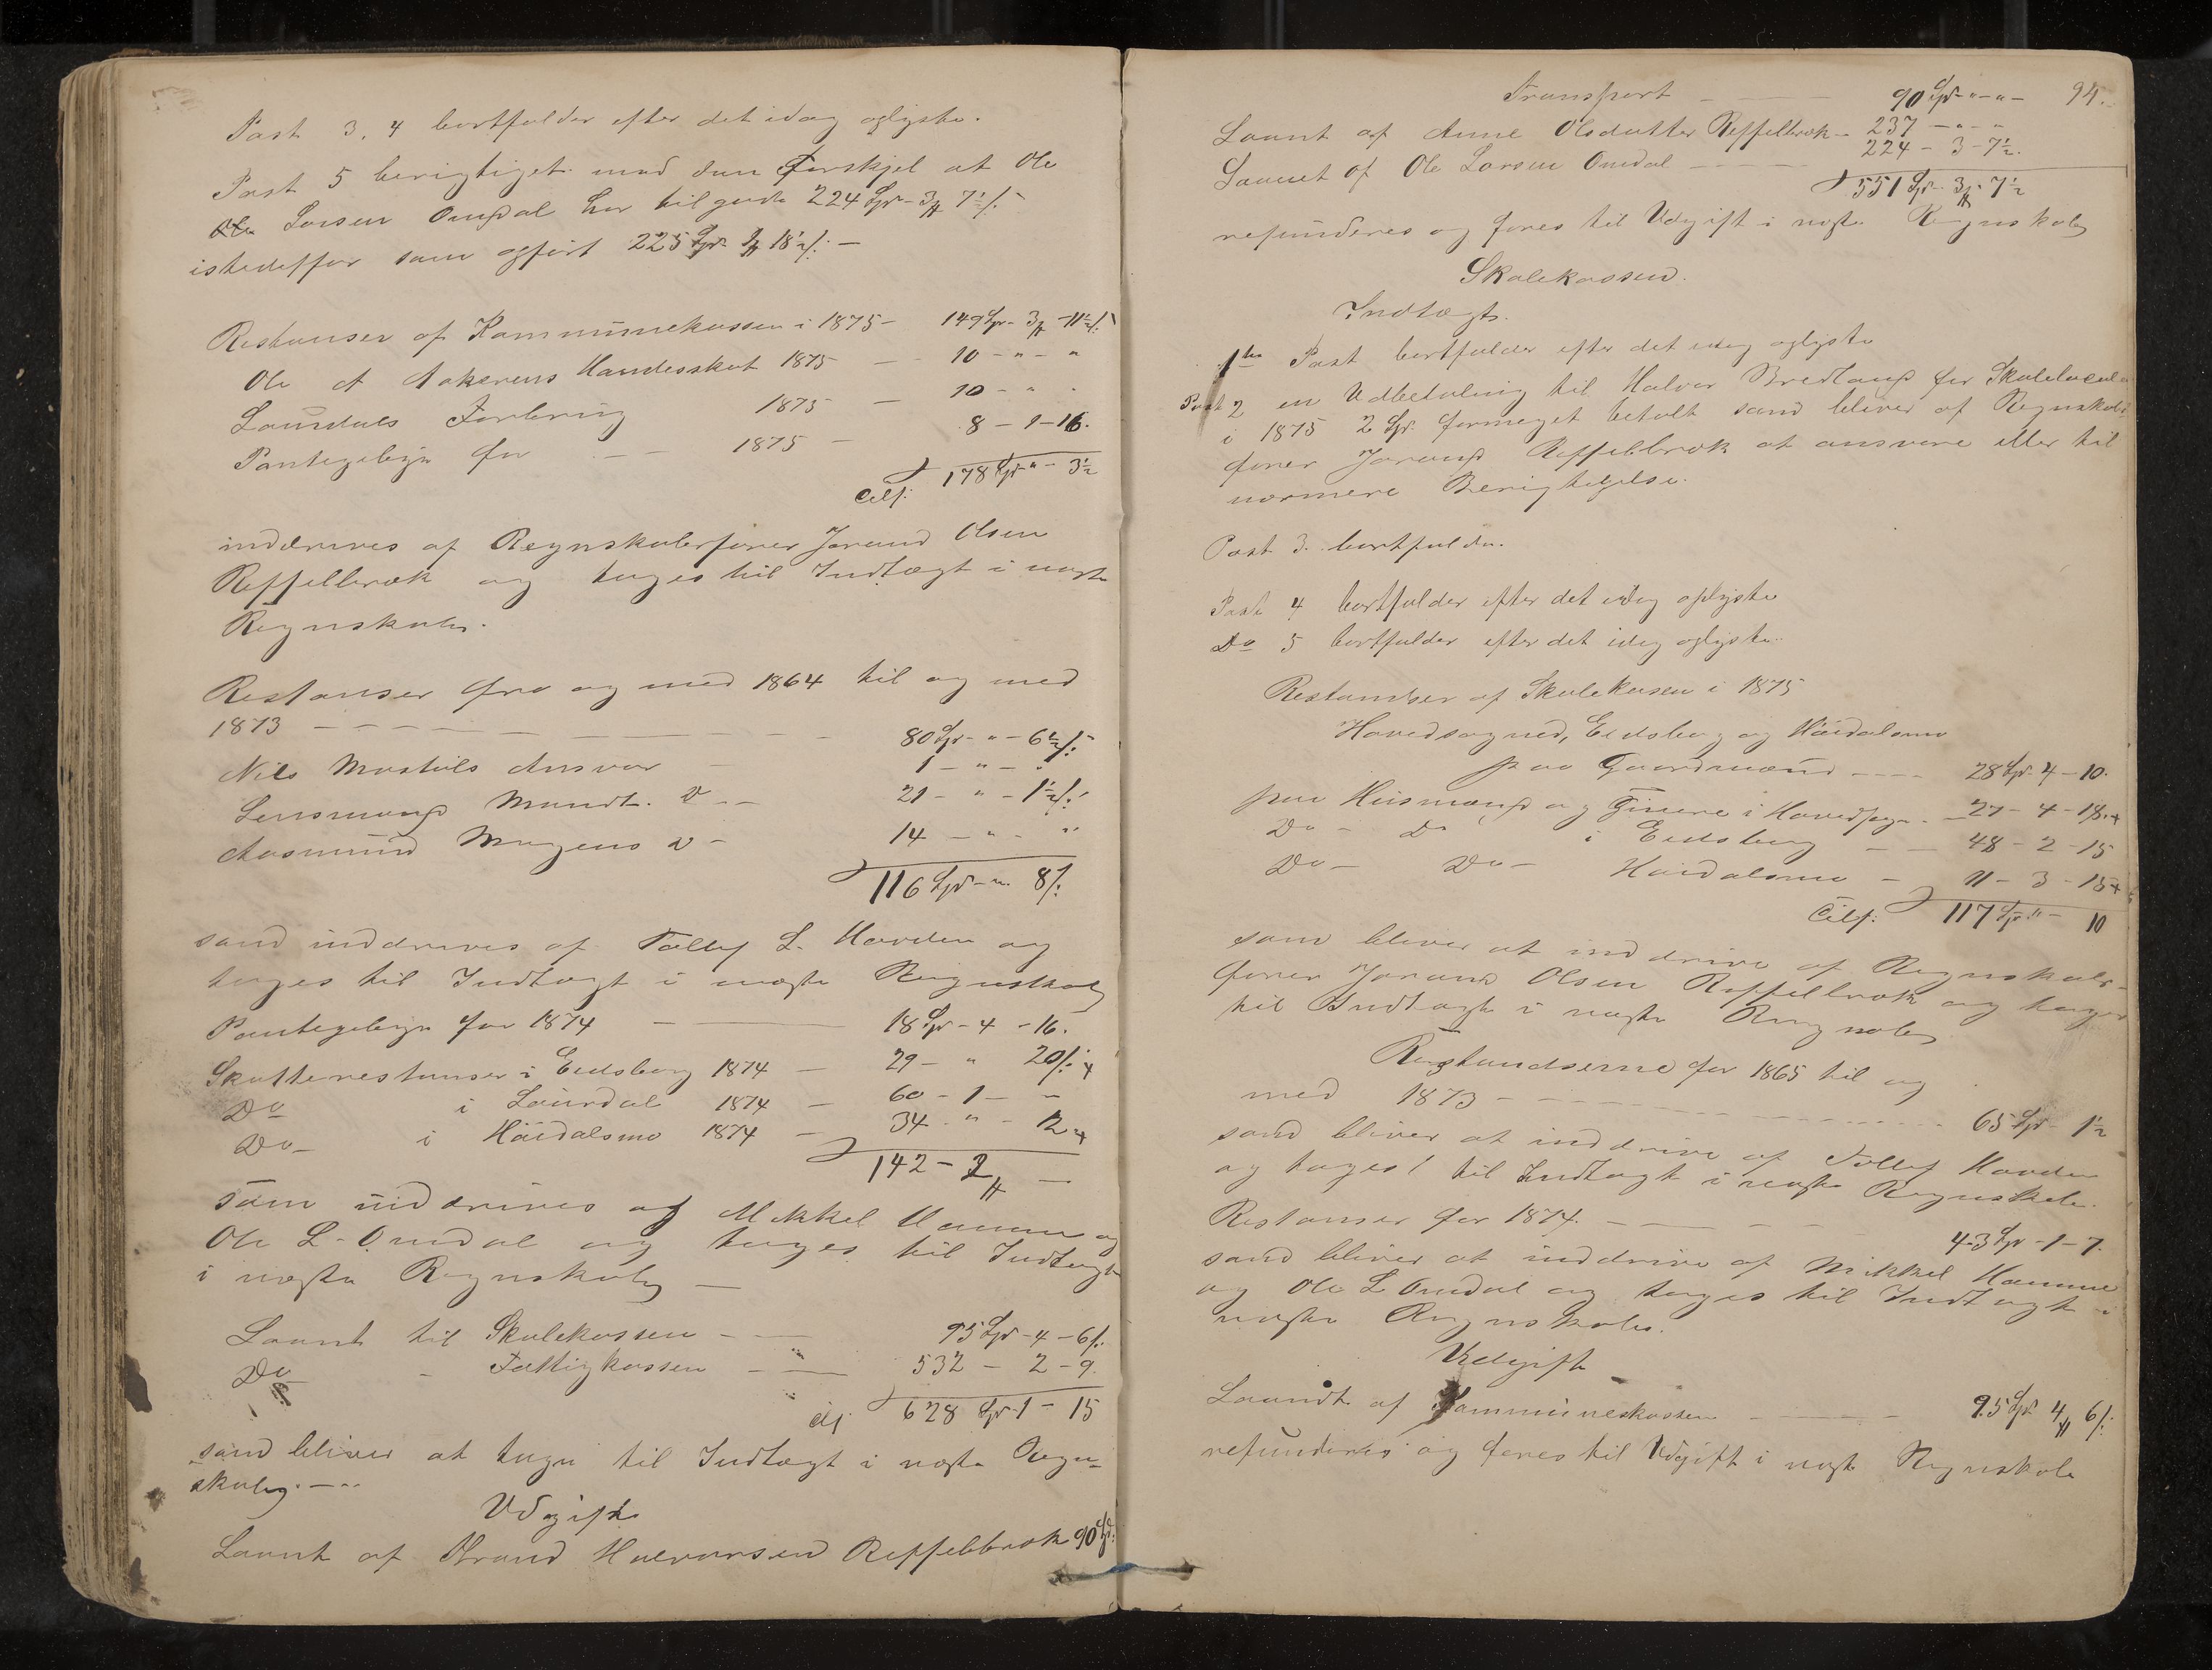 Post 3, 4 bortfalder efter det idag oplyste.
Post 5 berigtiget med den Forskjel at Ole
Larsen Omdal har tilgode 224 Spd - 3 ₶ 7½ s.
istedetfor som opført 225 Spd 18½ s. —
Restanser af Kommunekassen i 1875 - 149 Spd - 3 ₶ - 11½ s.
Ole A Aakerens Handesskat 1875 — 10 - " - "
Laurdals Forbering 1875 — 10 - " "
Pantegebyr for — 1875 — 8 - 1 - 16.
Tils: 178 Spd " - 3½
inddrives af Regnskabsfører Jorand Olsen
Reffelbræk og tages til Indtægt i næste
Regnskab.
Restanser fra og med 1864 til og med
1873 — 80 Spd - " - 6½ s.
Nils Mostuls Ansvar — 1 - " - "
Lensmand Mundt. D — 21 - " - 1½ s.
Aasmund Mogens D - 14 - " - "
116 Spd - " 8 s.
som inddrives af Tollef L. Hovden og
tages til Indtægt i næste Regnskab
Pantegebyr for 1874 — 18 Spd - 4 - 16.
Skatterestanser i Eidsborg 1874 — 29 - " 20 s.
Do i Laurdal 1874 — 60 - 1 - -
Do - i Høidalsmo 1874 — 34 - " - 12
142 - 2 ₶ —
som inddrives af Mikkel Hamme og
Ole L. Omdal og tages til Indtægt
i næste Regnskab —
Laant til Skolekassen — 95 Spd - 4 - 6 s.
Do - Fattigkassen — 532 - 2 - 9.
Tils 628 Spd 1 - 15
som bliver at tage til Indtægt i næste Regn-
skab. —
Udgift
Laant af Halvorsen Reffelbræk 90 Spd.
94.
Transport — 90 Spd - " - " -
Laant af Anne Olsdatter Reffelbræk - 237 - " - "
Laanet af Ole Larsen Omdal — 224 - 3 - 7½.
551 Spd. 3 ₶ 7½
refunderes og føres til Udgift i næste Regnskab
Skolekassen.
Indtægt.
1ste Post bortfalder efter det idag oplyste
Post 2 en Udbetaling til Halvor Bredland for Skolelocale
i 1875 2 Spd. formeget betalt som bliver af Regnskabs
fører Jorand Reffelbræk at ansvare eller til
nærmere Berigtigelse.
Post 3. bortfalder.
Post 4 bortfalder efter det idag oplyste
Do 5 bortfalder efter det idag oplyste.
Restanser af Skolekassen i 1875
Hovedsognet, Eidsborg og Høidalsmo
paa Gaardmænd — 28 Spd 4 - 10.
paa Husmænd og Tjenere i Hovedsogn. — 27 - 4 - 18.
Do - Do i Eidsborg — 48 - 2 - 15
Do - Do - Høidalsmo — 11 - 3 - 15
Tils: 117 Spd " - 10
som bliver at inddrive af Regnskabs-
fører Jorand Olsen Reffelbræk og tages
til Indtægt i næste Regnskab
Restandserne for 1865 til og
med 1873 — 65 Spd - 1½
som bliver at inddrive af Tollef Hovden
og tages til Indtægt i næste Regnskab.
Restanser for 1874. — 43 Spd - 1 - 7.
som bliver at inddrive af Mikkel Hamme
og Ole L Omdal og tages til Indtægt i
næste Regnskab.
Udgift
Laandt af Kommunekassen — 95 Spd 4 ₶ 6 s.
refunderes og føres til Udgift i næste Regnskab